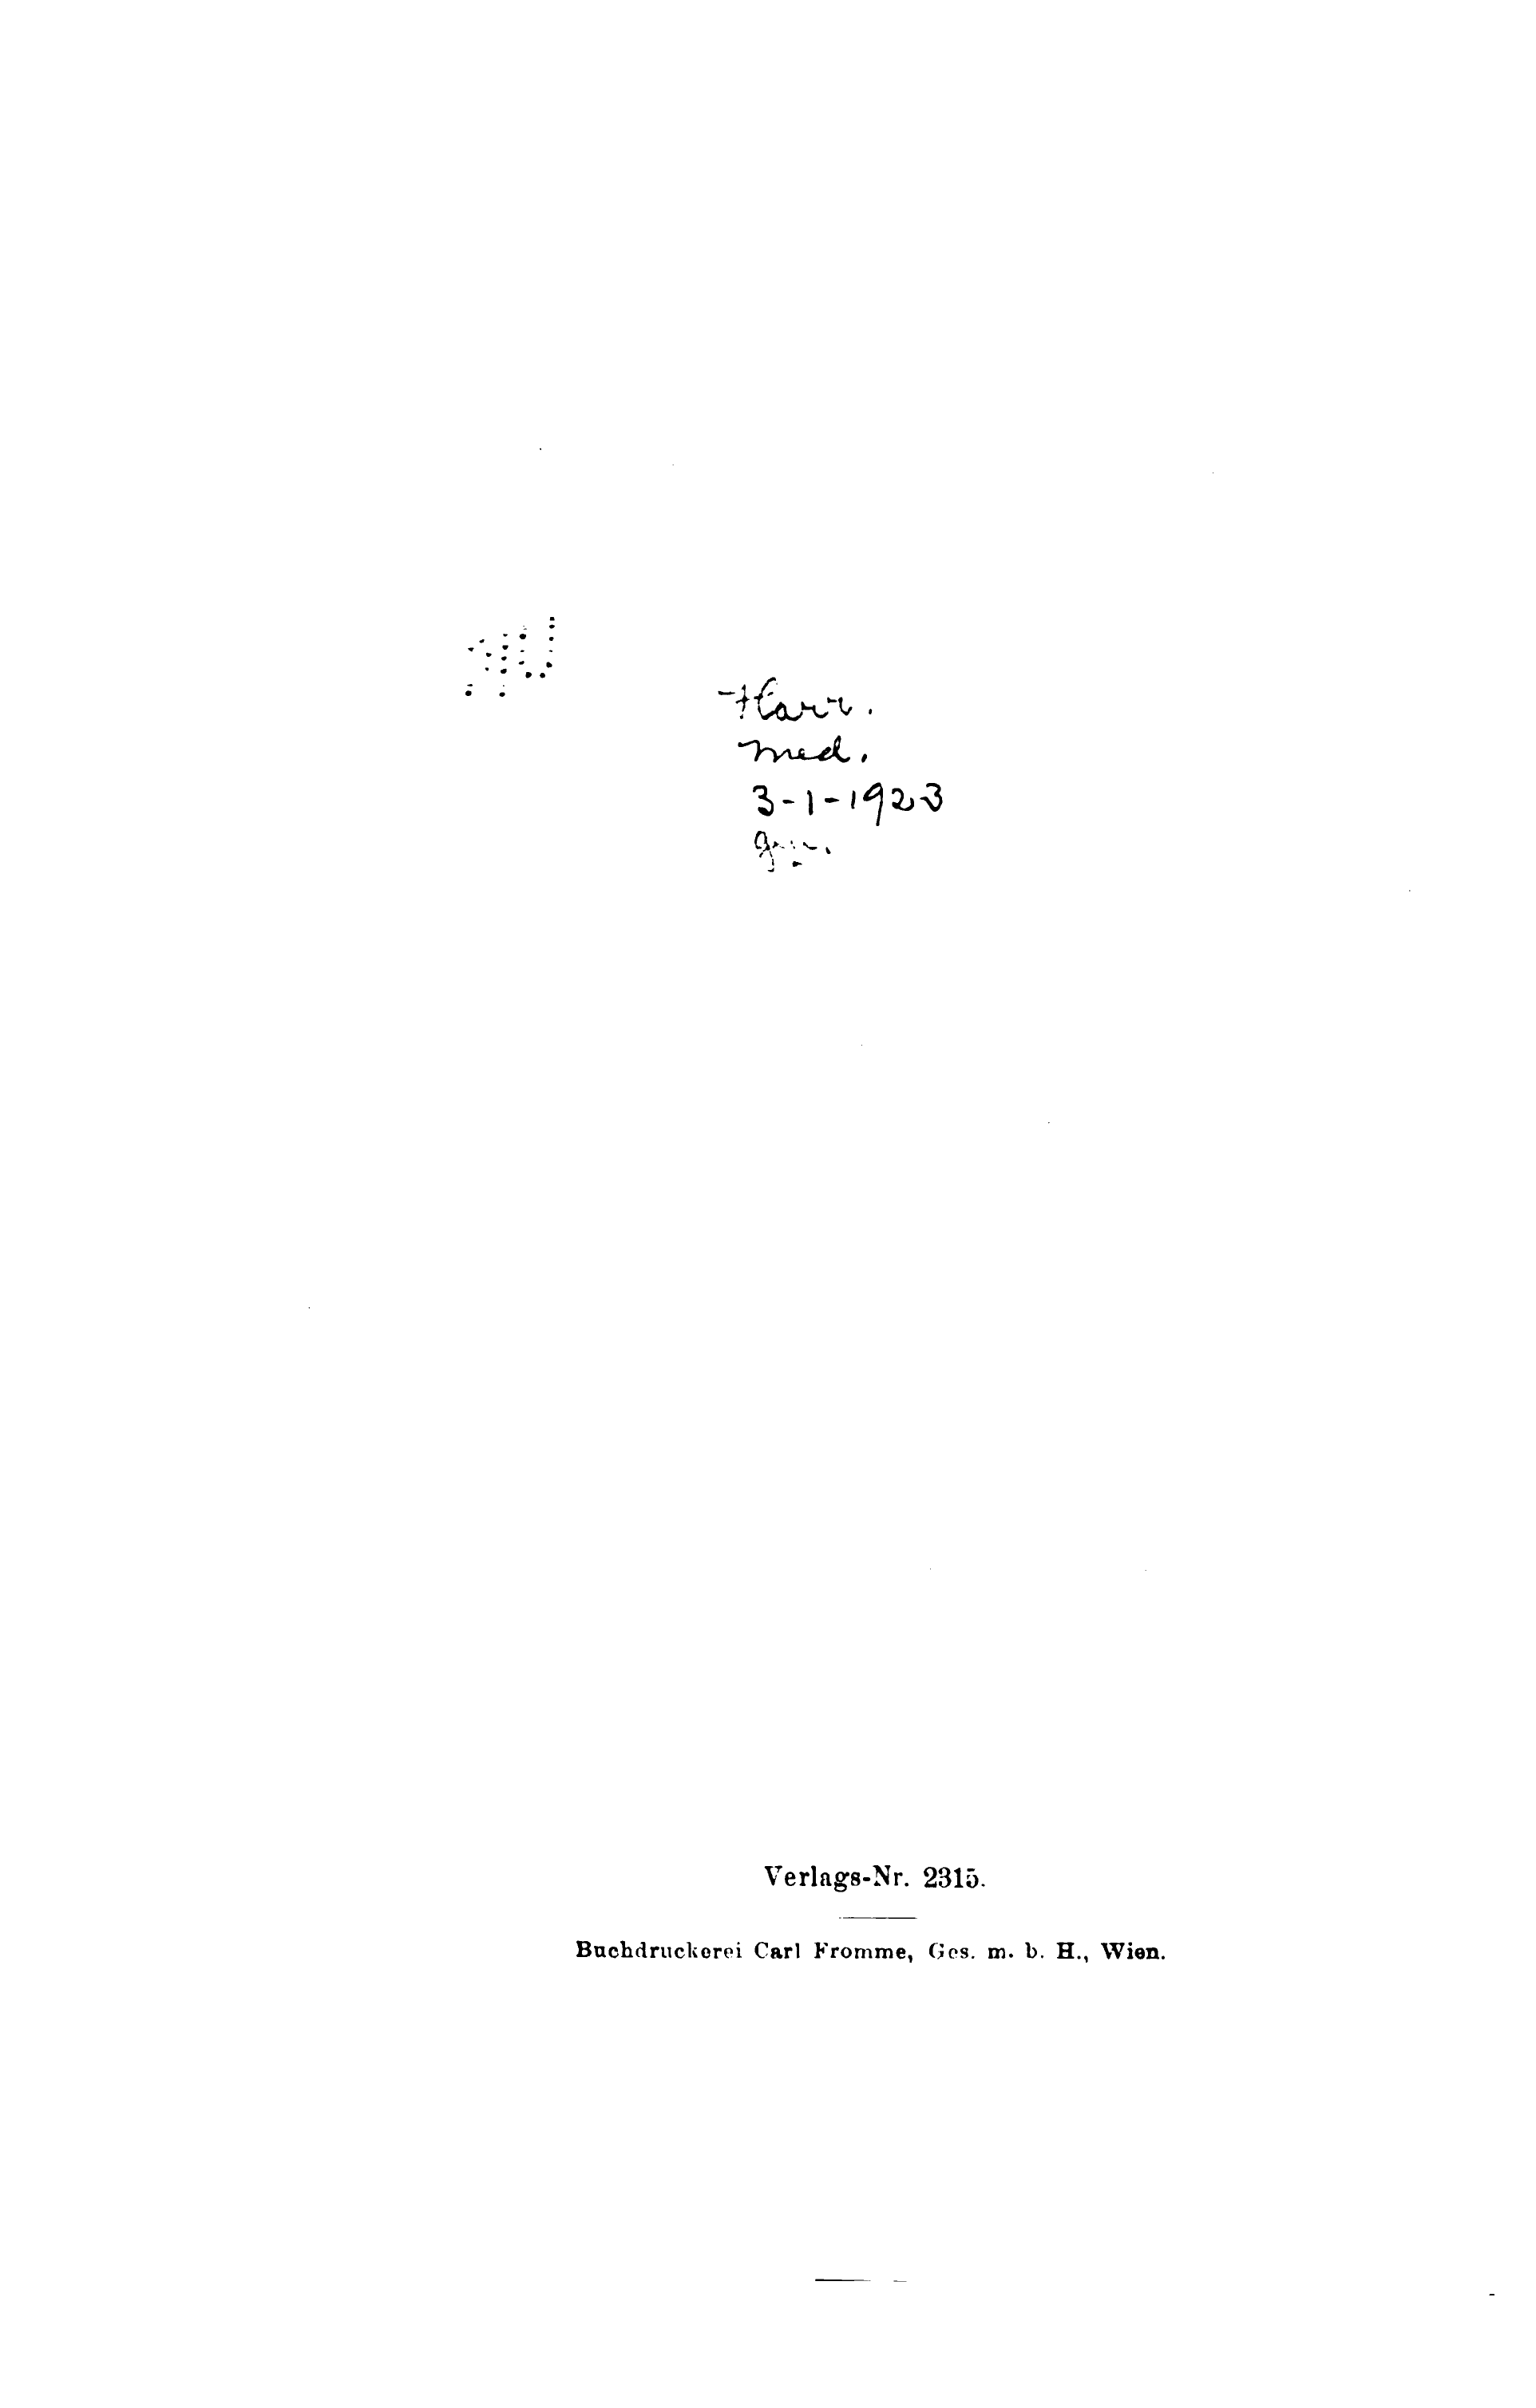 Harr.
med.
3-1-1923
Verlags-Nr. 2315.
Buchdruckerei Carl Fromme, Ges. m. b. H., Wien.